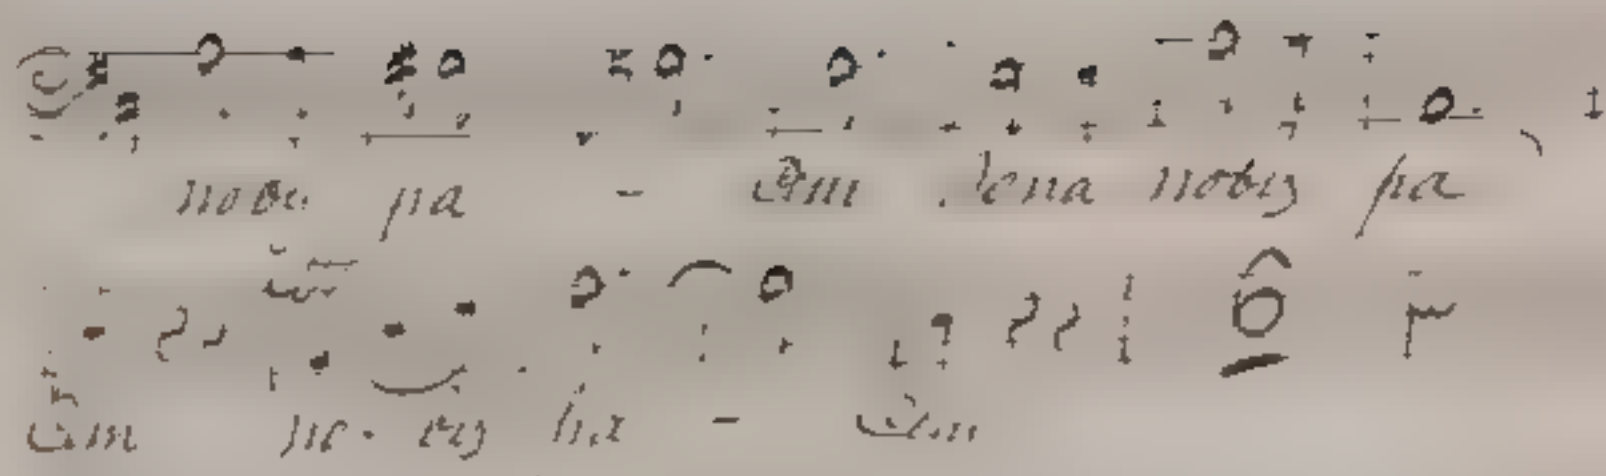 nobis pa - cem dona nobis pa
cem no- bis pa - cem